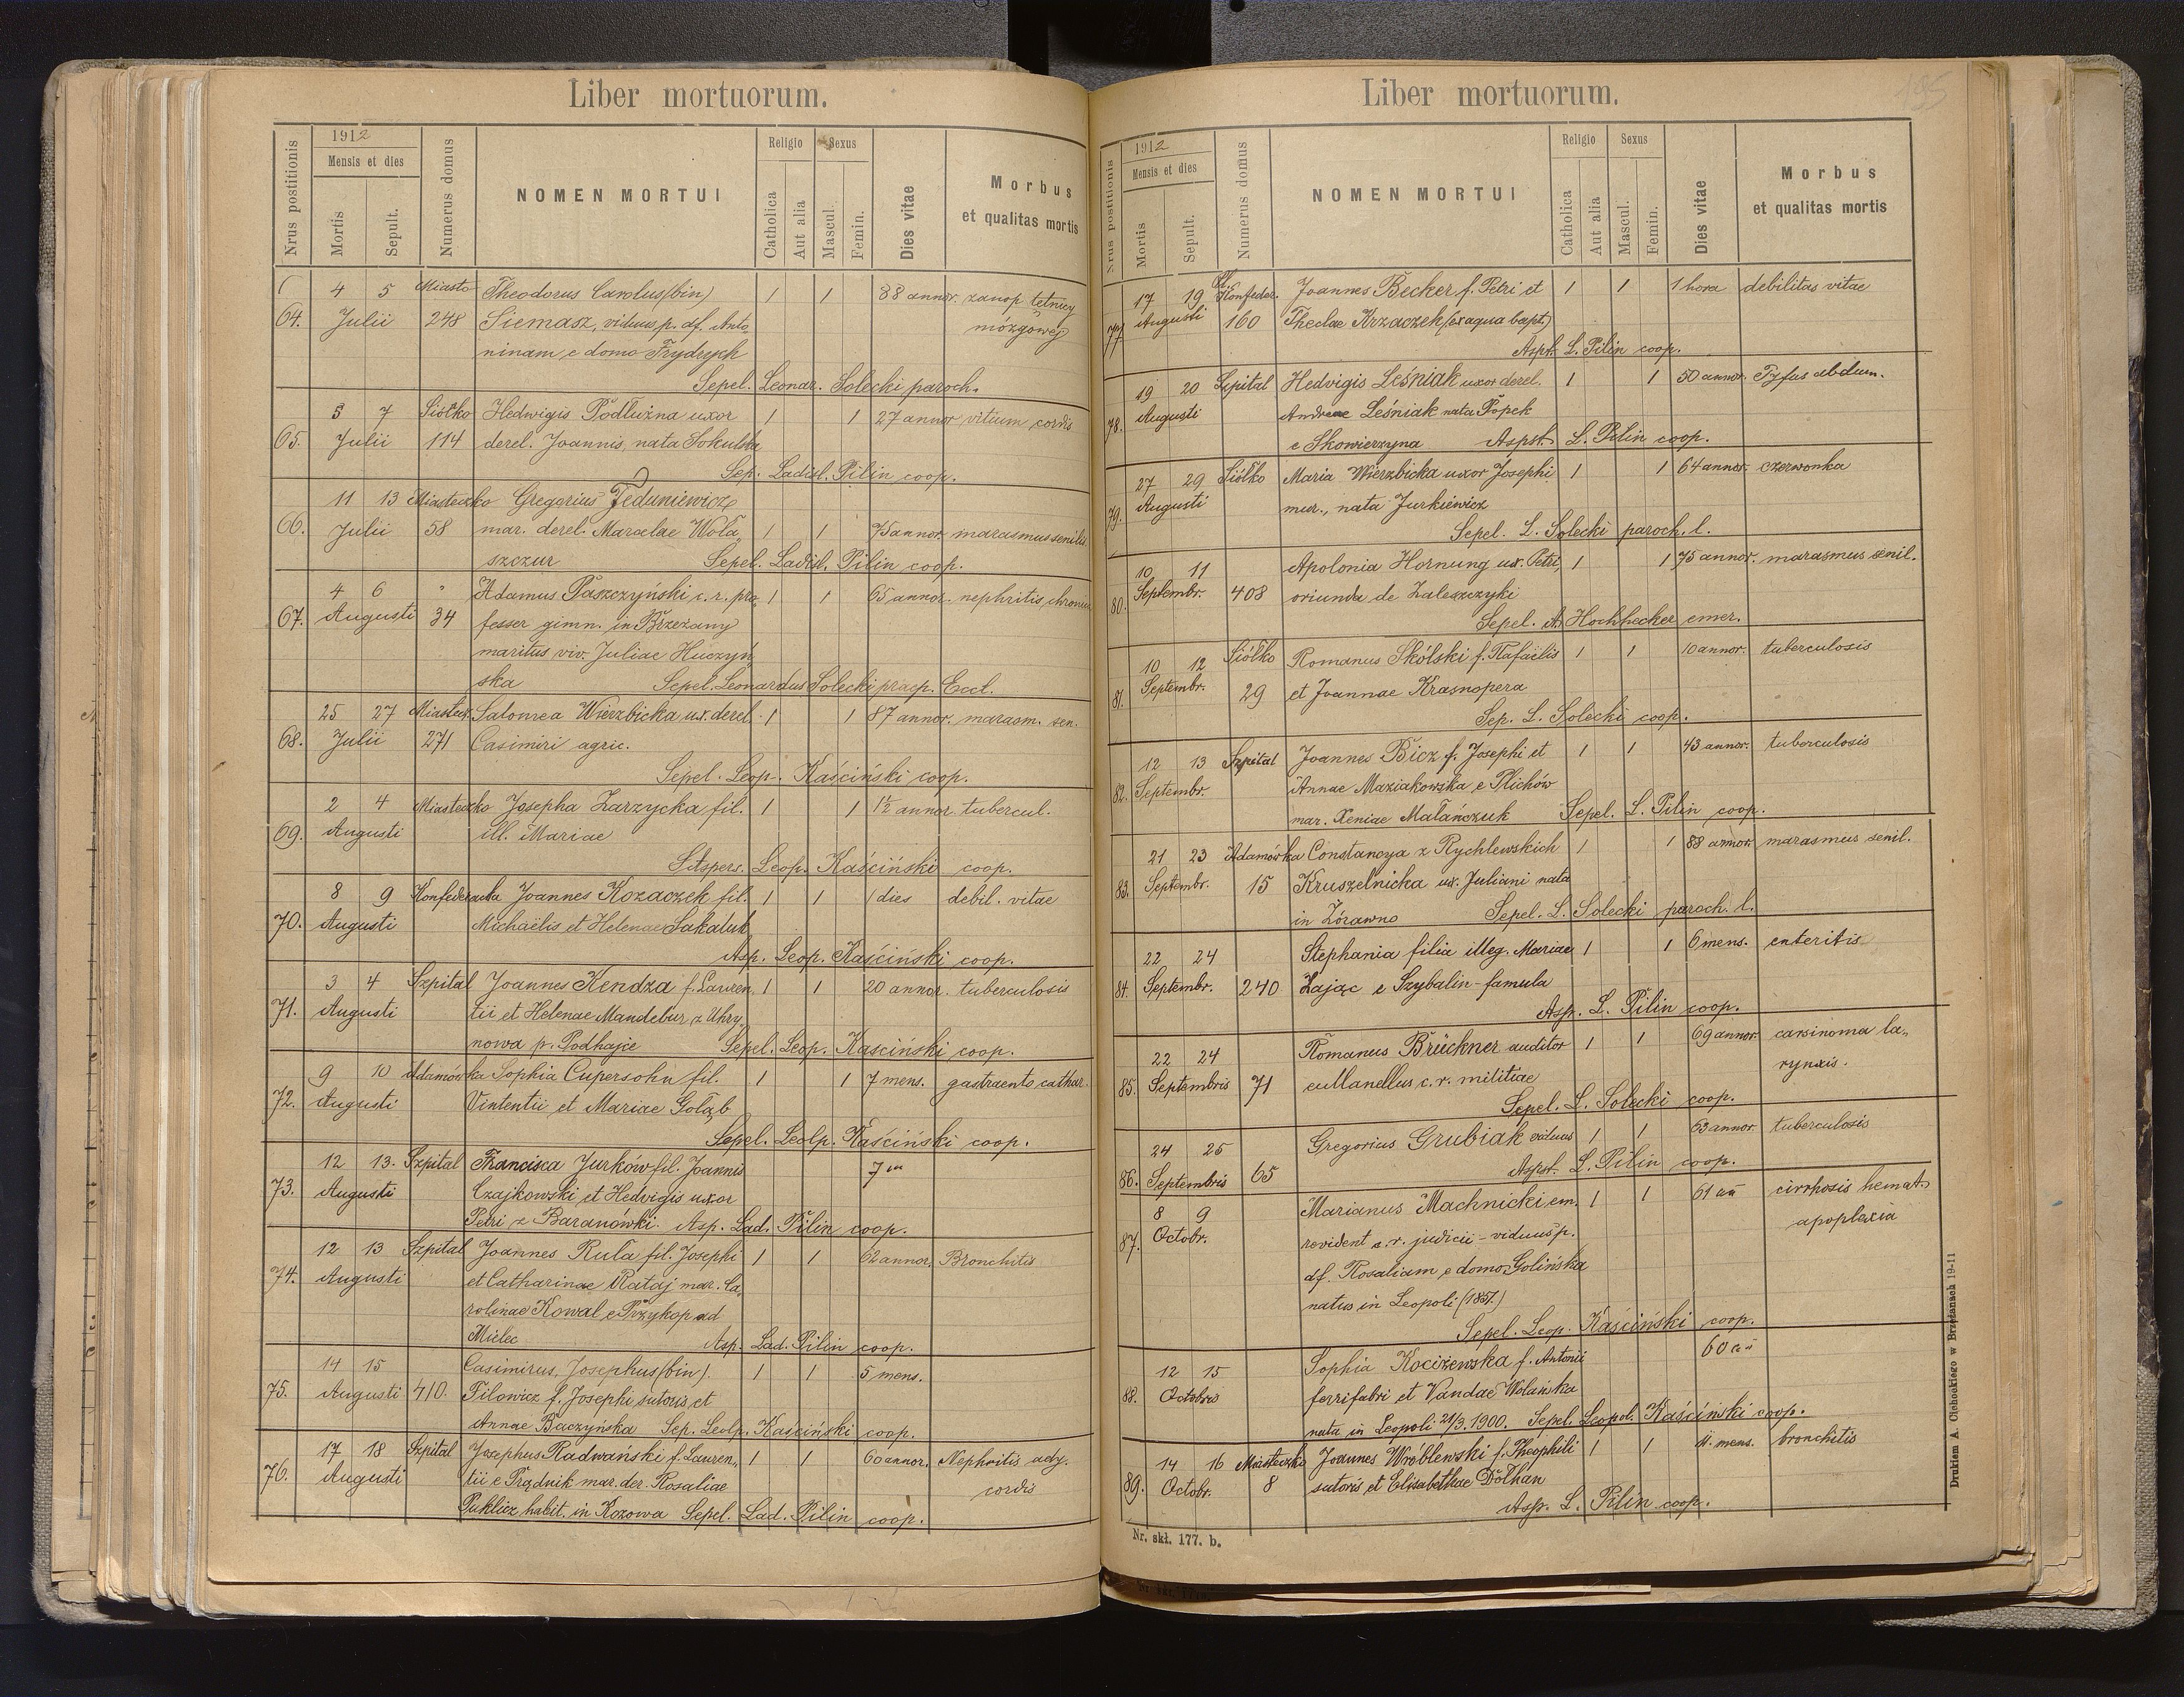 Liber mortuorum.
Nrus postitionis
1912
Mensis et dies
Mortis
Sepult.
Numerus domus
NOMEN MORTUI
Religio
Catholica
Aut alia
Sexus
Mascul.
Femin.
Dies vitae
Morbus
et qualitas mortis
4 5 Miasto Theodorus Carolus (bin) 1 1 88 annor. zanop. tętnicy
64. Julii 248 Siemasz, viduus p. df. Anto mózgowej
ninam e domo Frydrych
Sepel. Leonar. Solecki paroch.
5 7 Siółko Hedwigis Podlużna uxor 1 1 27 annor vitium cordis
65. Julii 114 derel. Joannis, nata Sokulska
Sep. Ladisl. Pilin coop.
11 13 Miasteczko Gregorius Feduniewicz
66. Julii 58 mar. derel. Marcelae Wola„ 1 1 75 annor. marasmus senilis.
szczur Sepel. Ladisl. Pilin coop.
4 6 " Adamus Paszczyński c. r. pro„ 1 1 65 annor. nephritis chronica
67. Augusti 34 fesser gimn. in Brzeżany
maritus viv. Juliae Huczyń
ska Sepel. Leonardus Solecki praep. Eccl.
25 27 Miasteczk. Salomea Wierzbicka ux. derel. 1 1 87 annor. marasm. sen.
68. Julii 271 Casimiri agric.
Sepel. Leop. Kaściński coop.
2 4 Miasteczko Josepha Zarzycka fil. 1 1 1½ annor. tubercul.
69. Augusti ill. Mariae
Aspers. Leop. Kaściński coop.
8 9 Konfederacka Joannes Kozaczek fil. 1 1 1 dies debil. vitae
70. Augusti Michaëlis et Helenae Sakaluk
Asp. Leop. Kaściński coop.
3 4 Szpital Joannes Kendza f. Lauren„ 1 1 20 annor. tuberculosis
71. Augusti tii et Helenae Mandebur, z Uhry„
nowa p. Podhajce Sepel. Leop. Kaściński coop.
9 10 Adamówka Sophia Cupersohn fil. 1 1 7 mens. gastraento cathar.
72. Augusti Vintentii et Mariae Gołąb
Sepel. Leolp. Kaściński coop.
12 13. Szpital Francisca Jurków fil. Joannis 7
73. Augusti Czajkowski et Hedvigis uxor
Petri z Baranówki. Asp. Lad. Pilin coop.
12 13 Szpital Joannes Rula fil. Josephi 1 1 62 annor. Bronchitis
74. Augusti et Catharinae Rataj mar. Ca„
rolinae Kowal e Przykop ad
Mielec Asp. Lad. Pilin coop.
14 15 Casimirus, Josephus (bin). 1 1 5 mens.
75. Augusti 410. Filowicz f. Josephi sutoris, et
Annae Baczyńska Sep. Leolp. Kaściński coop.
17 18 Szpital Josephus Radwański f. Lauren„ 1 1 60 annor. Nephritis ady.
76. Augusti tii e Prądnik mar. der. Rosaliae cordis
Puklicz habit. in Kozowa Sepel. Lad. Pilin coop.
Liber mortuorum.
195
Nrus postitionis
1912
Mensis et dies
Mortis
Sepult.
Numerus domus
NOMEN MORTUI
Religio
Catholica
Aut alia
Sexus
Mascul.
Femin.
Dies vitae
Morbus
et qualitas mortis
17 19 Konfeder. Joannes Becker f. Petri et 1 1 1 hora debilitas vitae
77. Augusti 160 Theclae Krzaczek (ex aqua bapt.)
Aspt. L. Pilin coop.
19 20 Szpital Hedvigis Leśniak uxor derel. 1 1 50 annor. Tyfus abdum.
78. Augusti Andreae Leśniak nata Popek
e Skowierzyna Aspst. L. Pilin coop.
27 29 Siółko Maria Wierzbicka uxor Josephi 1 1 64 annor. czerwonka
79. Augusti mur., nata Jurkiewicz
Sepel. L. Solecki paroch. l.
10 11 Apolonia Hornung ux. Petri, 1 1 75 annor. marasmus senil.
80. Septembr. 408 oriunda de Zaleszczyki
Sepel. A. Hochhecker emer.
10 12 Siółko Romanus Skólski f. Rafaëlis 1 1 10 annor. tuberculosis
81. Septembr. 29 et Joannae Krasnopera
Sep. L. Solecki coop.
12 13 Szpital Joannes Bicz f. Josephi et 1 1 43 annor. tuberculosis
82. Septembr. Annae Maziakowska e Plichów
mar. Xeniae Malańczuk Sepel. L. Pilin coop.
21 23 Adamówka Constancya z Rychlewskich 1 1 88 annor. marasmus senil.
83. Septembr. 15 Kruszelnicka ux. Juliani nata
in Żórawno Sepel. L. Solecki paroch. l.
22 24 Stephania filia illeg. Mariae 1 1 6 mens. enteritis
84. Septembr. 240 Zając e Szybalin - famula
Asp. L. Pilin coop.
22 24 Romanus Brückner auditor 1 1 69 annor. carsinoma la„
85. Septembris 71 c. r. militiae rynxis.
Sepel. L. Solecki coop.
24 25 Gregorius Grubiak viduus 1 1 63 annor. tuberculosis
86. Septembris 65 Aspst. L. Pilin coop.
8 9 Marianus Machnicki em. 1 1 61 an cirrhosis hemat.
87. Octobr. revident c. r. judicii - viduus p. apoplexia
df. Rosaliam e domo Golińska
natus in Leopoli (1851.)
Sepel. Leop. Kaściński coop.
12 15 Sophia Kociżewska f. Antonii 60
88. Octobris ferrifabri et Vandae Wolańska
nata in Leopoli 21/3. 1900. Sepel. Leopol. Kaściński coop.
14 16 Miasteczko Joannes Wróblewski f. Theophili 1 1 11. mens. bronchitis
89. Octobr. 8 sutoris et Elisabethae Dołhan
Asp. L. Pilin coop.
Nr. skł. 177. b.
Drukiem A. Cichockiego w Brzeżanach 19-11